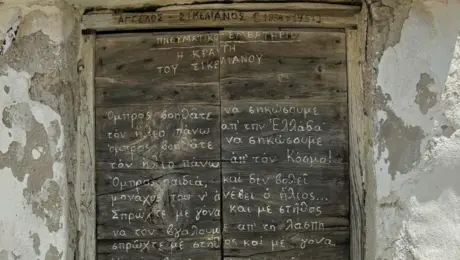 ΑΓΓΕΛΟΣ - ΣΙΚΕΛΙΑΝΟΣ (1884-1951)
ΠΝΕΥΜΑΤΙΚΟ ΕΜΒΑΤΗΡΙΟ
Η ΚΡΑΥΓΗ
ΤΟΥ ΣΙΚΕΛΙΑΝΟΥ
Ομπρος βοηθάτε να σηκώσουμε
τον ήλιο πάνω απ' την Ελλάδα
ομπρος βοηθάτε να σηκώσουμε
τον ήλιο πάνω απ' τον Κόσμο!
Ομπρος παιδιά, και δεν βολεί
μοναχός του ν' ανέβει ο ήλιος...
Σπρώχτε με γόνα και με στήθος
να τον βγαλουμε απ' τη λάσπη
σπρώχτε με στήθος και με γόνα